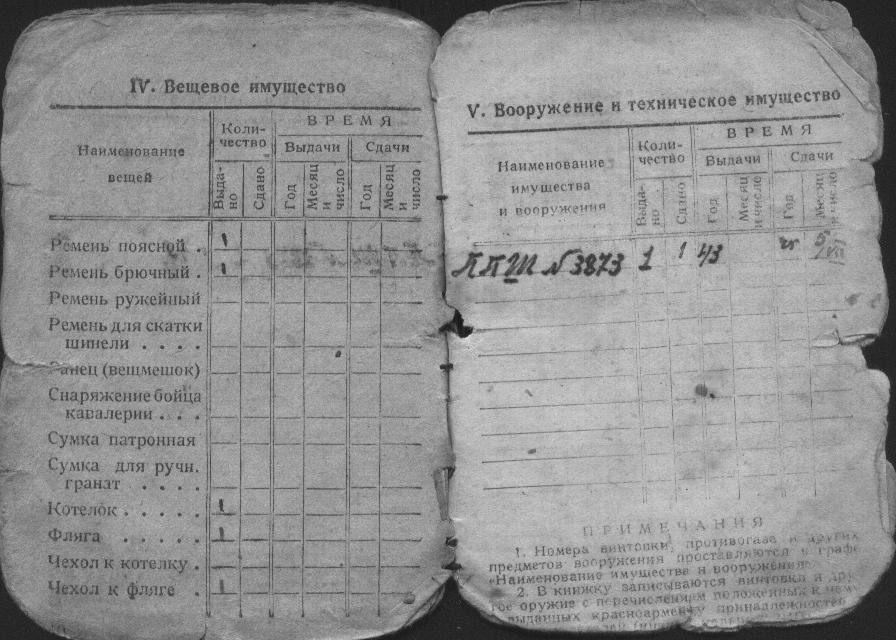 IV. Вещевое имущество
Наименование
вещей
Коли-
чество
ВРЕМЯ
Выдачи
Сдачи
Выда-
но
Сдано
Год
Месяц
и
число
Год
Месяц
и
число
Ремень поясной . 1
Ремень брючный . 1
Ремень ружейный
Ремень для скатки
шинели . . . .
(вещмешок)
Снаряжение бойца
кавалерии . . .
Сумка патронная
Сумка для ручн.
гранат . . . .
Котелок . . . . . 1
Фляга . . . . . 1
Чехол к котелку .
Чехол к фляге . 1
V. Вооружение и техническое имущество
Наименование
имущества
и вооружения
Коли-
чество
ВРЕМЯ
Выдачи
Сдачи
Выда-
но
Сдано
Год
Месяц
и число
Год
Месяц
и число
ППШ № 3873 1 1 43
ПРИМЕЧАНИЯ
1. Номера винтовки, противогаза и других
предметов вооружения проставляются в графе
«Наименование имущества и вооружения».
2. В книжку записываются винтовка и
оружие с перечислением положенных к
выданных красноармейцу принадлежностей